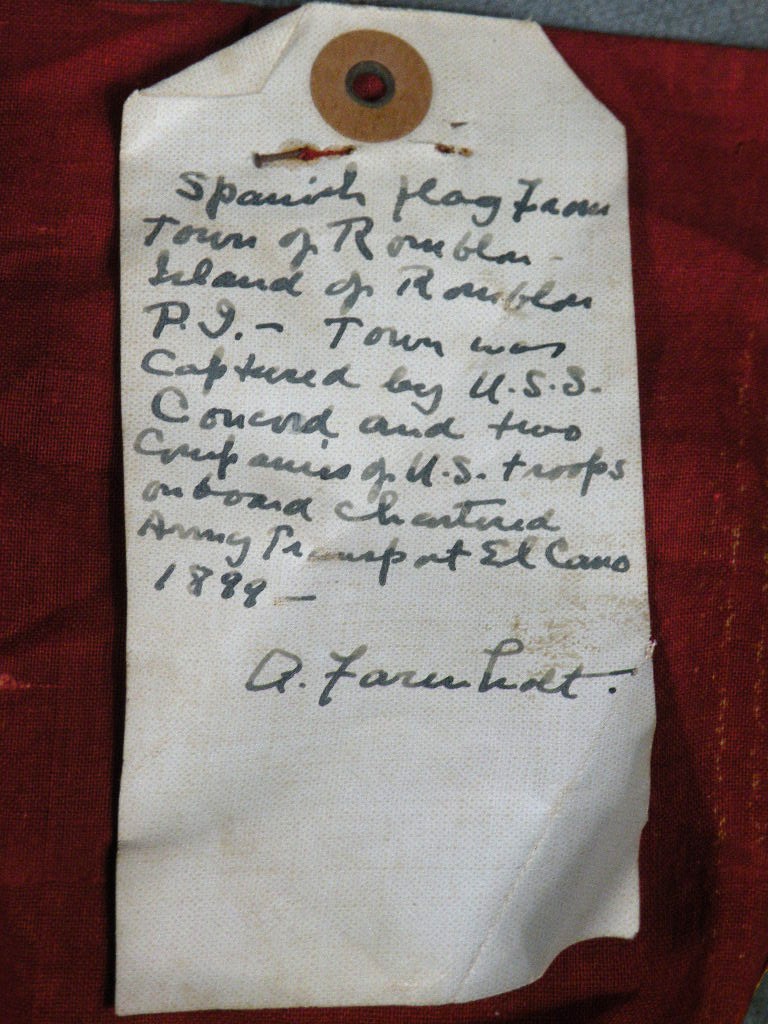 Spanish flag from
Town of Romblon -
Island of Romblon
P.I. - Town was
Captured by U.S.S.
Concord and two
Companies of U.S. troops
onboard chartered
Army Transport El Cano
1899 -
A. Farenholt.